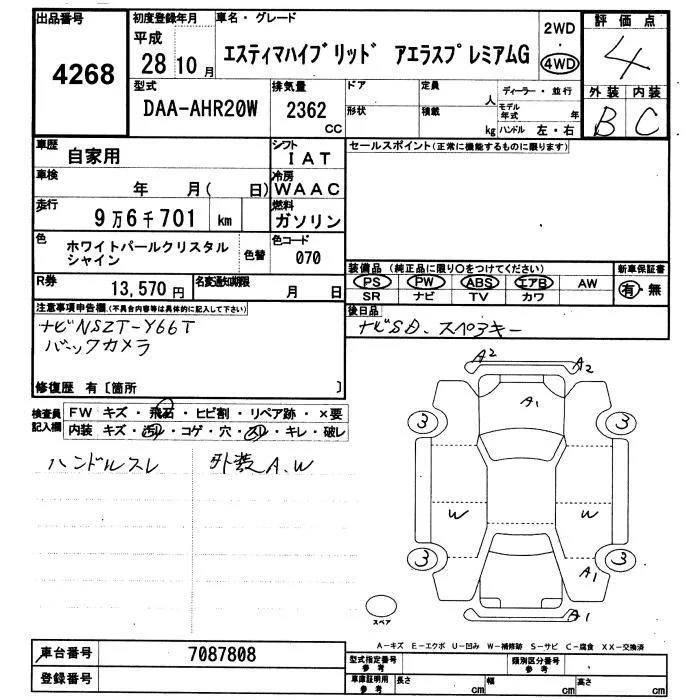 出品番号 4268
初度登録年月 平成 28 10月
車名・グレード エスティマハイブリッド アエラスプレミアムG
2WD 4WD
評価点 4
外装 内装
B C
型式 DAA-AHR20W
排気量 2362 cc
ドア
形状
定員 人
積載 kg
ディーラー・並行
モデル年式 年
ハンドル 左・右
車歴 自家用
シフト IAT
車検 年 月( 日)
冷房 WAAC
走行 9万6千701 km
燃料 ガソリン
色 ホワイトパールクリスタルシャイン
色替
色コード 070
R券 13,570円
名変通知期限 月 日
セールスポイント(正常に機能するものに限ります)
装備品(純正品に限り○をつけてください)
PS PW ABS エアB AW
SR ナビ TV カワ
新車保証書
有・無
後日品
ナビSD、スペアキー
注意事項申告欄(不具合内容等は具体的に記入して下さい)
ナビNSZT-Y66T
バックカメラ
修復歴 有〔箇所 〕
検査員記入欄
FW キズ・飛石・ヒビ割・リペア跡・×要
内装 キズ・汚れ・コゲ・穴・スレ・キレ・破レ
ハンドルスレ 外装A.W
A2 A2
A1
3 3
W W
3 3
A1
A1
スペア
A-キズ E-エクボ U-凹み W-補修跡 S-サビ C-腐食 XX-交換済
車台番号 7087808
登録番号
型式指定番号 参考
類別区分番号 参考
車庫証明用 参考
長さ cm
幅 cm
高さ cm